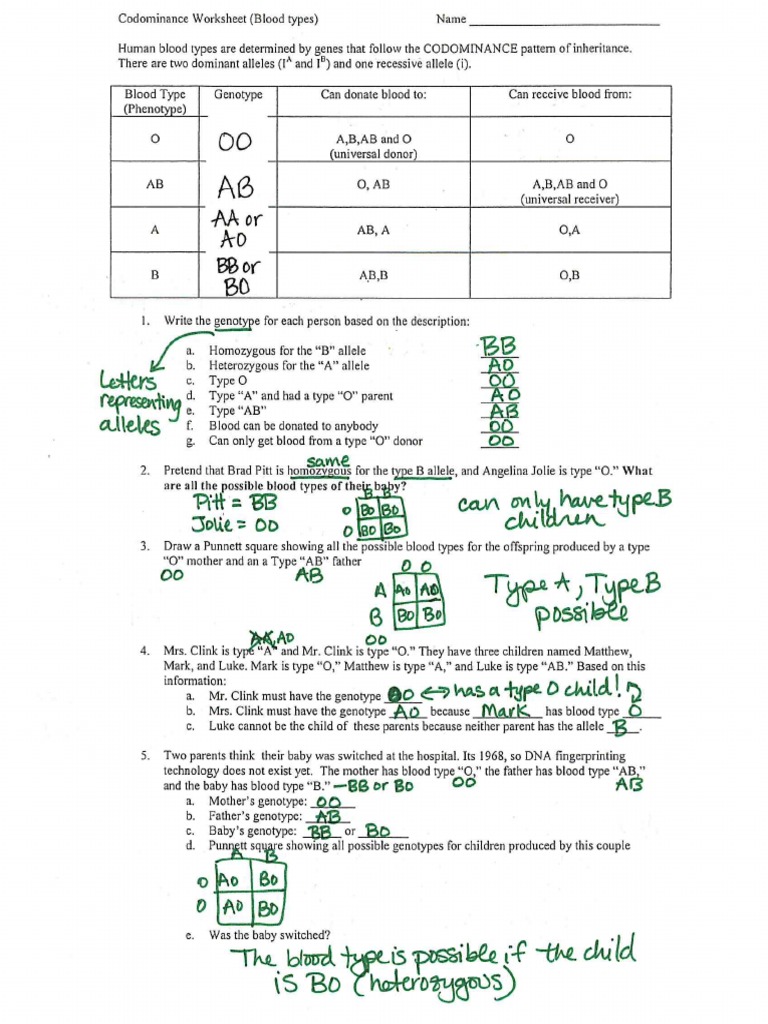 Codominance Worksheet (Blood types) Name
Human blood types are determined by genes that follow the CODOMINANCE pattern of inheritance.
There are two dominant alleles (I^A and I^B) and one recessive allele (i).
Blood Type (Phenotype) Genotype Can donate blood to: Can receive blood from:
O OO A,B,AB and O (universal donor) O
AB AB O, AB A,B,AB and O (universal receiver)
A AA or AO AB, A O,A
B BB or BO AB,B O,B
1. Write the genotype for each person based on the description:
a. Homozygous for the "B" allele BB
b. Heterozygous for the "A" allele AO
c. Type O OO
d. Type "A" and had a type "O" parent AO
e. Type "AB" AB
f. Blood can be donated to anybody OO
g. Can only get blood from a type "O" donor OO
Letters
representing
alleles
same
2. Pretend that Brad Pitt is homozygous for the type B allele, and Angelina Jolie is type "O." What
are all the possible blood types of their baby?
Pitt = BB
Jolie = OO
B B
O BO BO
O BO BO
can only have type B
children
3. Draw a Punnett square showing all the possible blood types for the offspring produced by a type
"O" mother and an a Type "AB" father
OO AB
O O
A AO AO
B BO BO
Type A, Type B
possible
AA, AO OO
4. Mrs. Clink is type "A" and Mr. Clink is type "O." They have three children named Matthew,
Mark, and Luke. Mark is type "O," Matthew is type "A," and Luke is type "AB." Based on this
information:
a. Mr. Clink must have the genotype OO ↔ has a type O child!
b. Mrs. Clink must have the genotype AO because Mark has blood type O
c. Luke cannot be the child of these parents because neither parent has the allele B.
5. Two parents think their baby was switched at the hospital. Its 1968, so DNA fingerprinting
technology does not exist yet. The mother has blood type "O," the father has blood type "AB,"
and the baby has blood type "B." – BB or BO OO AB
a. Mother's genotype: OO
b. Father's genotype: AB
c. Baby's genotype: BB or BO
d. Punnett square showing all possible genotypes for children produced by this couple
A B
O AO BO
O AO BO
e. Was the baby switched?
The blood type is possible if the child
is BO (heterozygous)